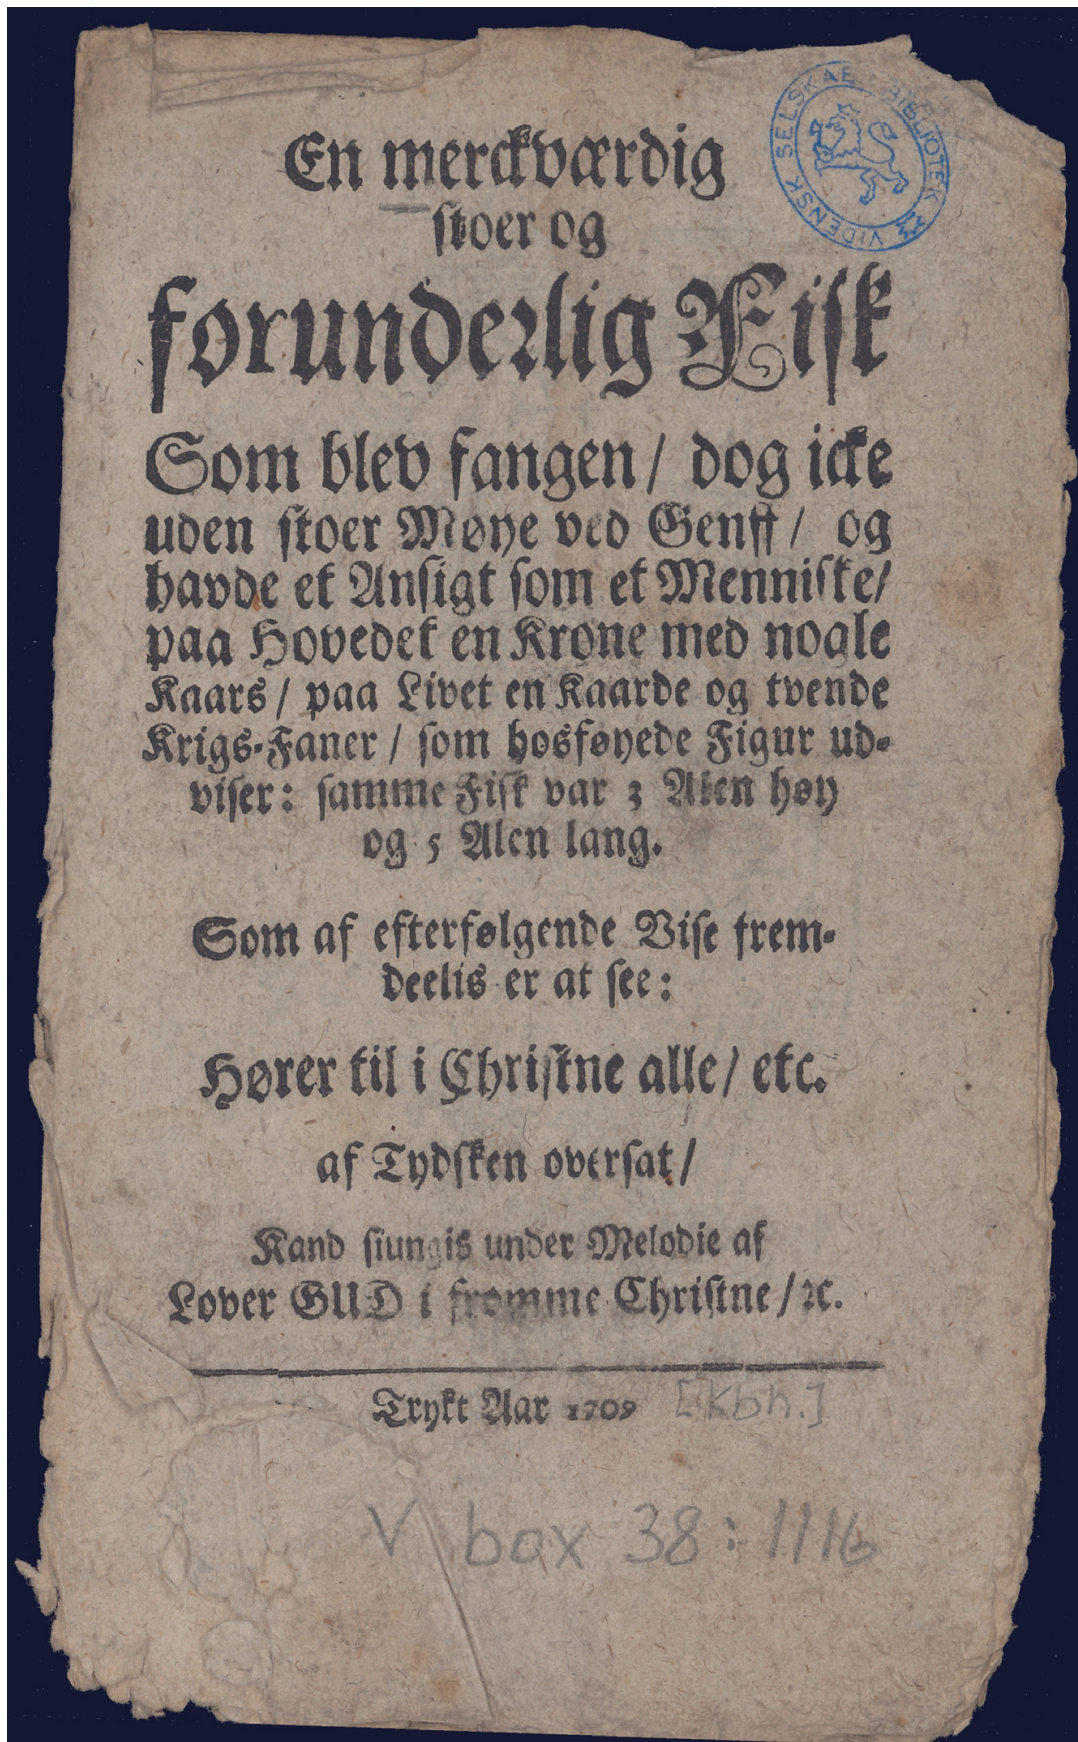 En merckværdig
stoer og
forunderlig Fisk
Som blev fangen / dog icke
uden stoer Møye ved Genff / og
havde et Ansigt som et Menniske /
paa Hovedet en Krone med nogle
Kaars / paa Livet en Kaarde og tvende
Krigs-Faner / som hosføyede Figur ud-
viser: samme Fisk var 3 Alen høy
og 5 Alen lang.
Som af efterfølgende Vise frem-
deelis er at see:
Hører til i Christne alle / etc.
af Tydsken oversat /
Kand siungis under Melodie af
Lover GUD i fromme Christne / ꝛc.
Trykt Aar 1709 [Kbh.]
V box 38: 1116
VIDENSK SELSKAB BIBLIOTEK